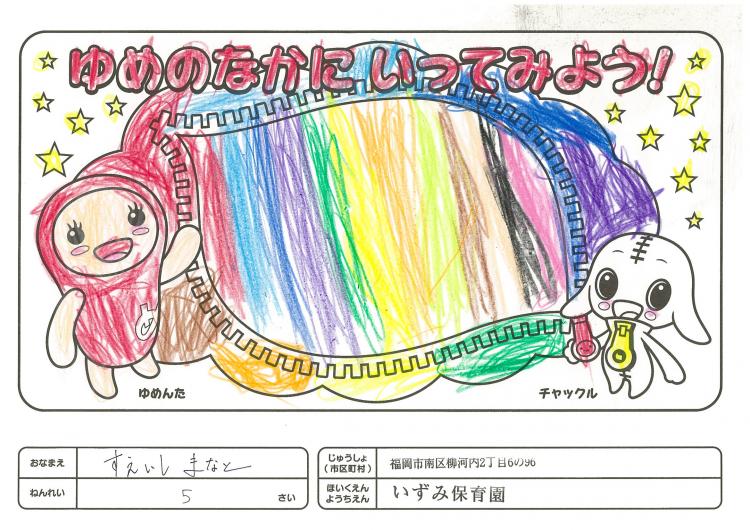 ゆめのなかに いってみよう!
ゆめんた
チャックル
おなまえ すえいし まなと
ねんれい 5 さい
じゅうしょ
(市区町村) 福岡市南区柳河内2丁目6の96
ほいくえん
ようちえん いずみ保育園